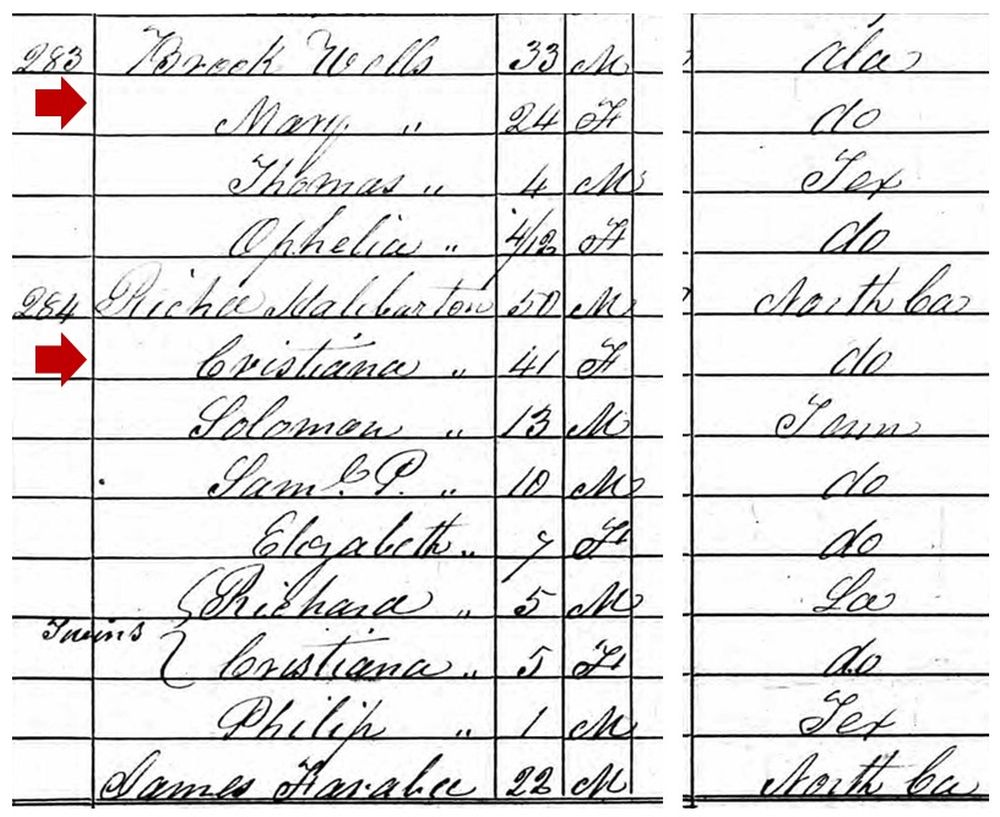 283 Brook Wells 33 M Ala
Mary " 24 F do
Thomas " 4 M Tex
Ophelia " 4/12 F do
284 Richd 50 M North Ca
Cristiana " 41 F do
Solomon " 13 M Tenn
Saml. P. " 10 M do
Elezabeth " 7 F do
Richard " 5 M La
Twins
Cristiana " 5 F do
Philip " 1 M Tex
James 22 M North Ca